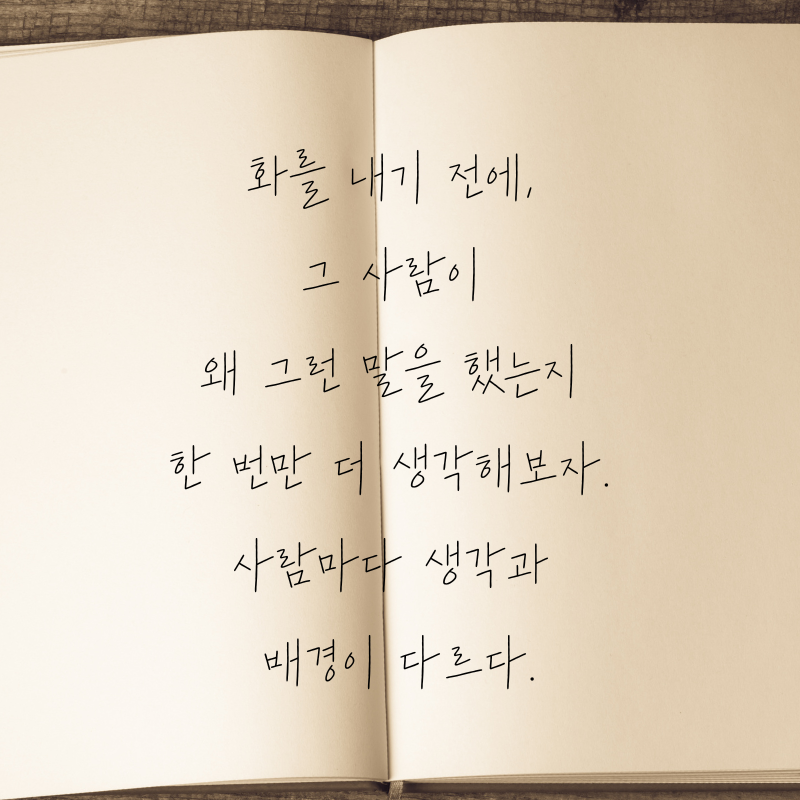 화를 내기 전에,
그 사람이
왜 그런 말을 했는지
한 번만 더 생각해보자.
사람마다 생각과
배경이 다르다.